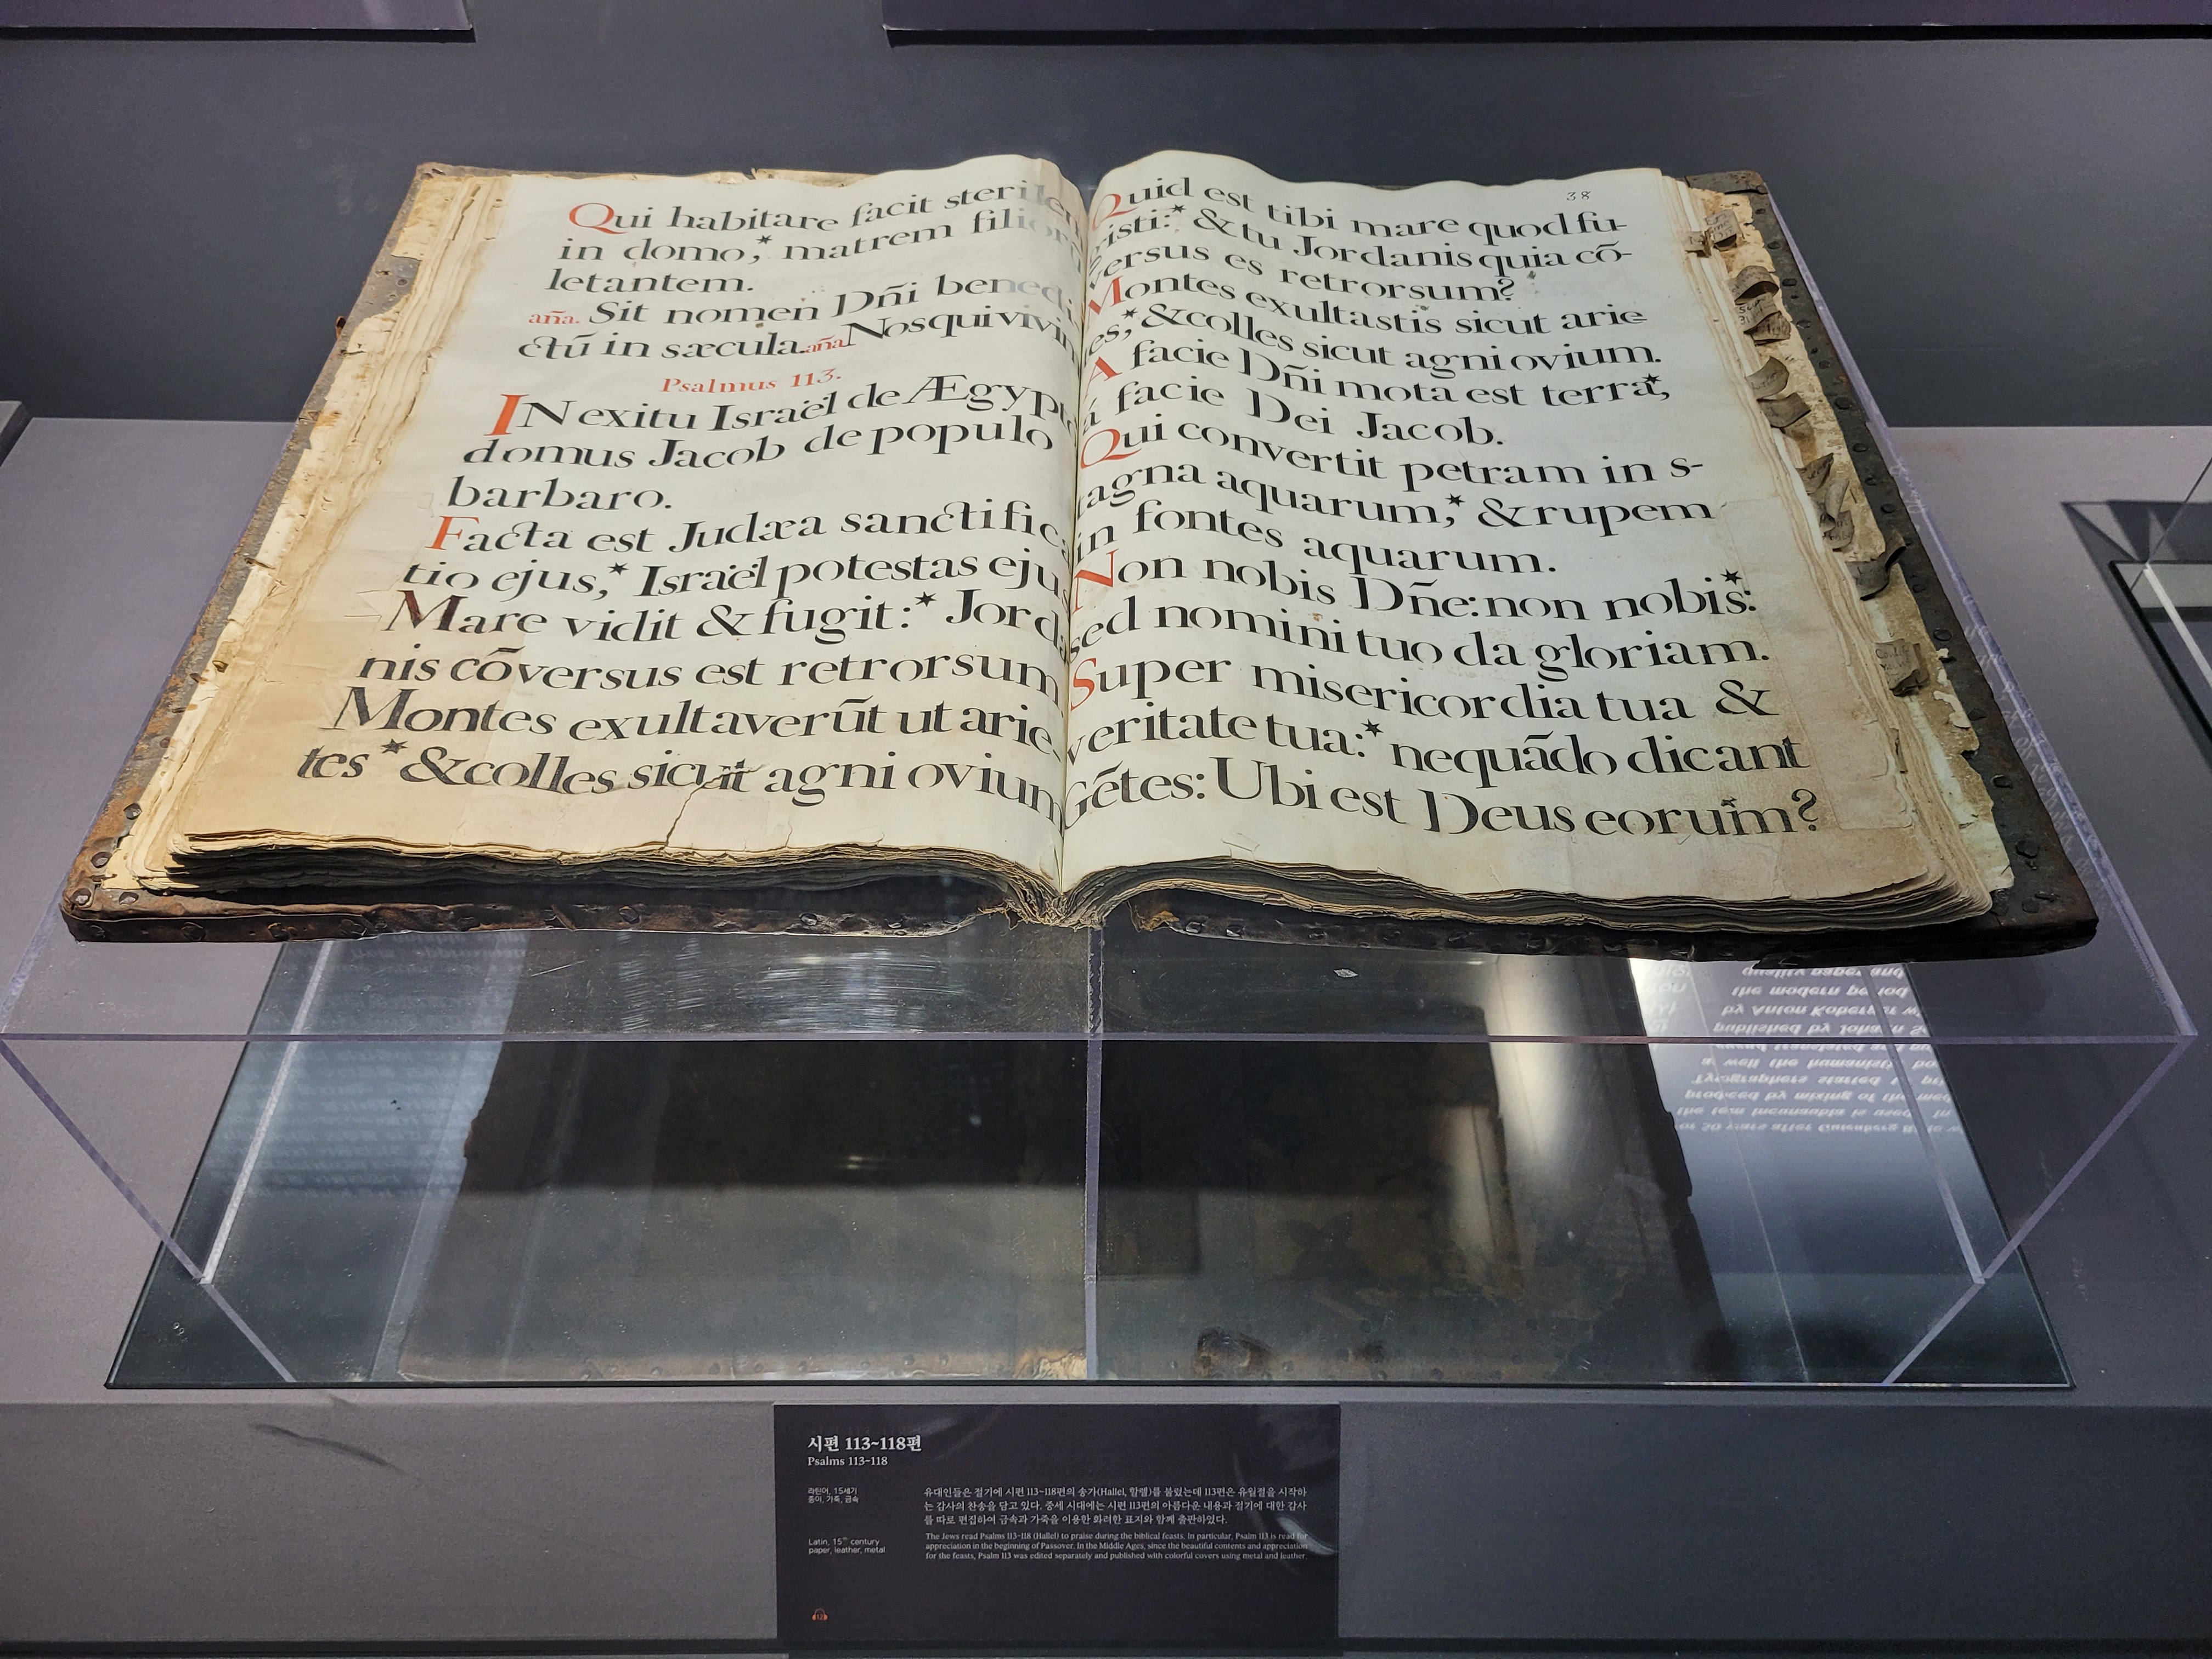 Qui habitare facit sterilem
in domo,* matrem filiorū
letantem.
aña. Sit nomen Dñi benedi-
ctū in sæcula. aña Nos qui vivim
Psalmus 113.
IN exitu Israël de Ægypto
domus Jacob de populo
barbaro.
Facta est Judæa sanctifica
tio ejus,* Israël potestas ejus
Mare vidit & fugit:* Jorda
nis cōversus est retrorsum
Montes exultaverūt ut arie-
tes * & colles sicut agni ovium
38
Quid est tibi mare quod fu-
gisti:* & tu Jordanis quia cō-
versus es retrorsum?
Montes exultastis sicut arie-
es,* & colles sicut agni ovium.
A facie Dñi mota est terra,*
á facie Dei Jacob.
Qui convertit petram in s-
tagna aquarum,* & rupem
in fontes aquarum.
Non nobis Dñe: non nobis:*
sed nomini tuo da gloriam.
Super misericordia tua &
veritate tua:* nequādo dicant
Gētes: Ubi est Deus eorum?
시편 113~118편
Psalms 113-118
라틴어, 15세기
종이, 가죽, 금속
유대인들은 절기에 시편 113~118편의 송가(Hallel, 할렐)를 불렀는데 113편은 유월절을 시작하
는 감사의 찬송을 담고 있다. 중세 시대에는 시편 113편의 아름다운 내용과 절기에 대한 감사
를 따로 편집하여 금속과 가죽을 이용한 화려한 표지와 함께 출판하였다.
Latin, 15th century
paper, leather, metal
The Jews read Psalms 113-118 (Hallel) to praise during the biblical feasts. In particular, Psalm 113 is read for
appreciation in the beginning of Passover. In the Middle Ages, since the beautiful contents and appreciation
for the feasts, Psalm 113 was edited separately and published with colorful covers using metal and leather.